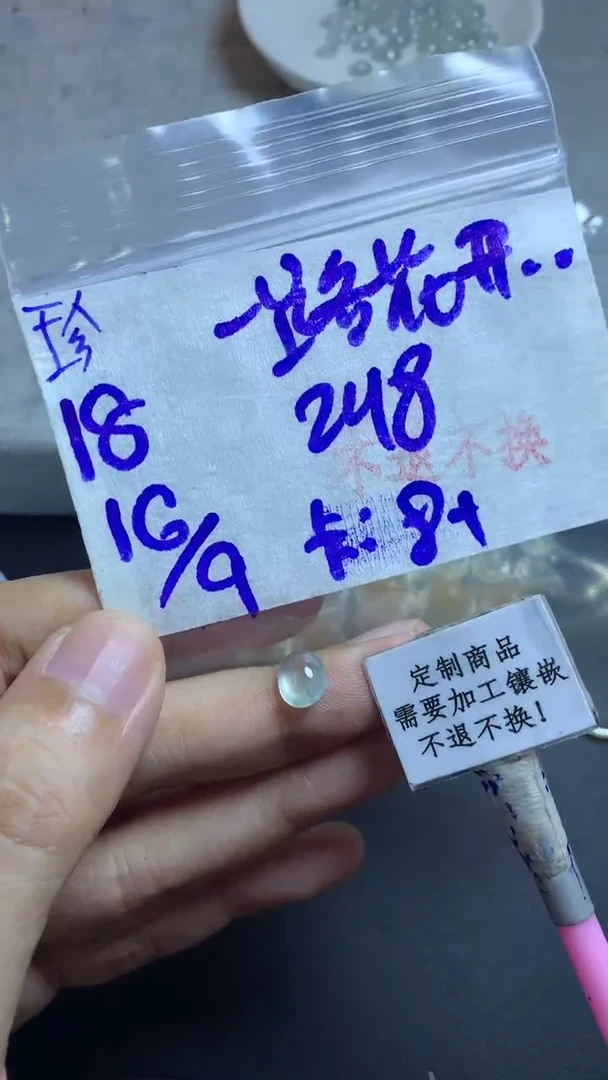 珍
一路花开..
18
248
不退不换
16/9
卡:8+
定制商品
需要加工镶嵌
不退不换!